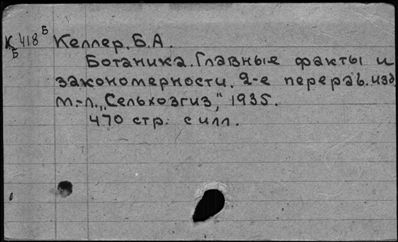 К 418 Б
Б
Келлер. Б. А.
Ботаника. Главные факты и
закономерности. 2-е перераб. изд
М.-Л. „Сельхозгиз," 1935.
470 стр. с илл.